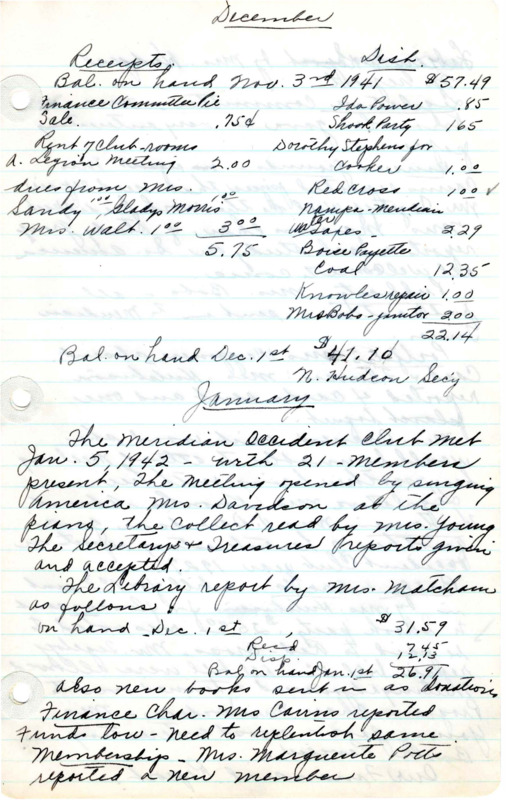 December
Receipts. Disb.
Bal. on hand Nov. 3rd 1941 $57.49
Finance Committee Pie Ida Power .85
Sale. .75¢ Shook Party 165
Rent of Club-rooms Dorothy Stephens for
A. Legion Meeting 2.00 Cooker 1.00
dues from Mrs. Red Cross 100
Sandy 1.00, Gladys Morris 1.00 Nampa-Meridian
Mrs. Walt. 1.00 3.00 Water 2.29
5.75 Boise Payette
Coal 12.35
Knowles repair 1.00
Mrs Bobs-janitor 2.00
22.14
Bal. on hand Dec. 1st $41.10
N. Hudson Sec'y
January
The Meridian Occident Club met
Jan. 5, 1942 - with 21 - members
present, The meeting opened by singing
America Mrs. Davidson at the
piano, the Collect read by Mrs. Young
The Secretarys + Treasures reports given
and accepted.
The Library report by Mrs. Matcham
as follows:
on hand Dec. 1st, $31.59
Recd 7.45
Disp. 12.13
Bal on hand Jan. 1st 26.91
Also new books sent in as donations
Finance Char. Mrs Cairns reported
Funds low - need to replenish same.
Membership - Mrs. Marguerite Potts
reported a new member